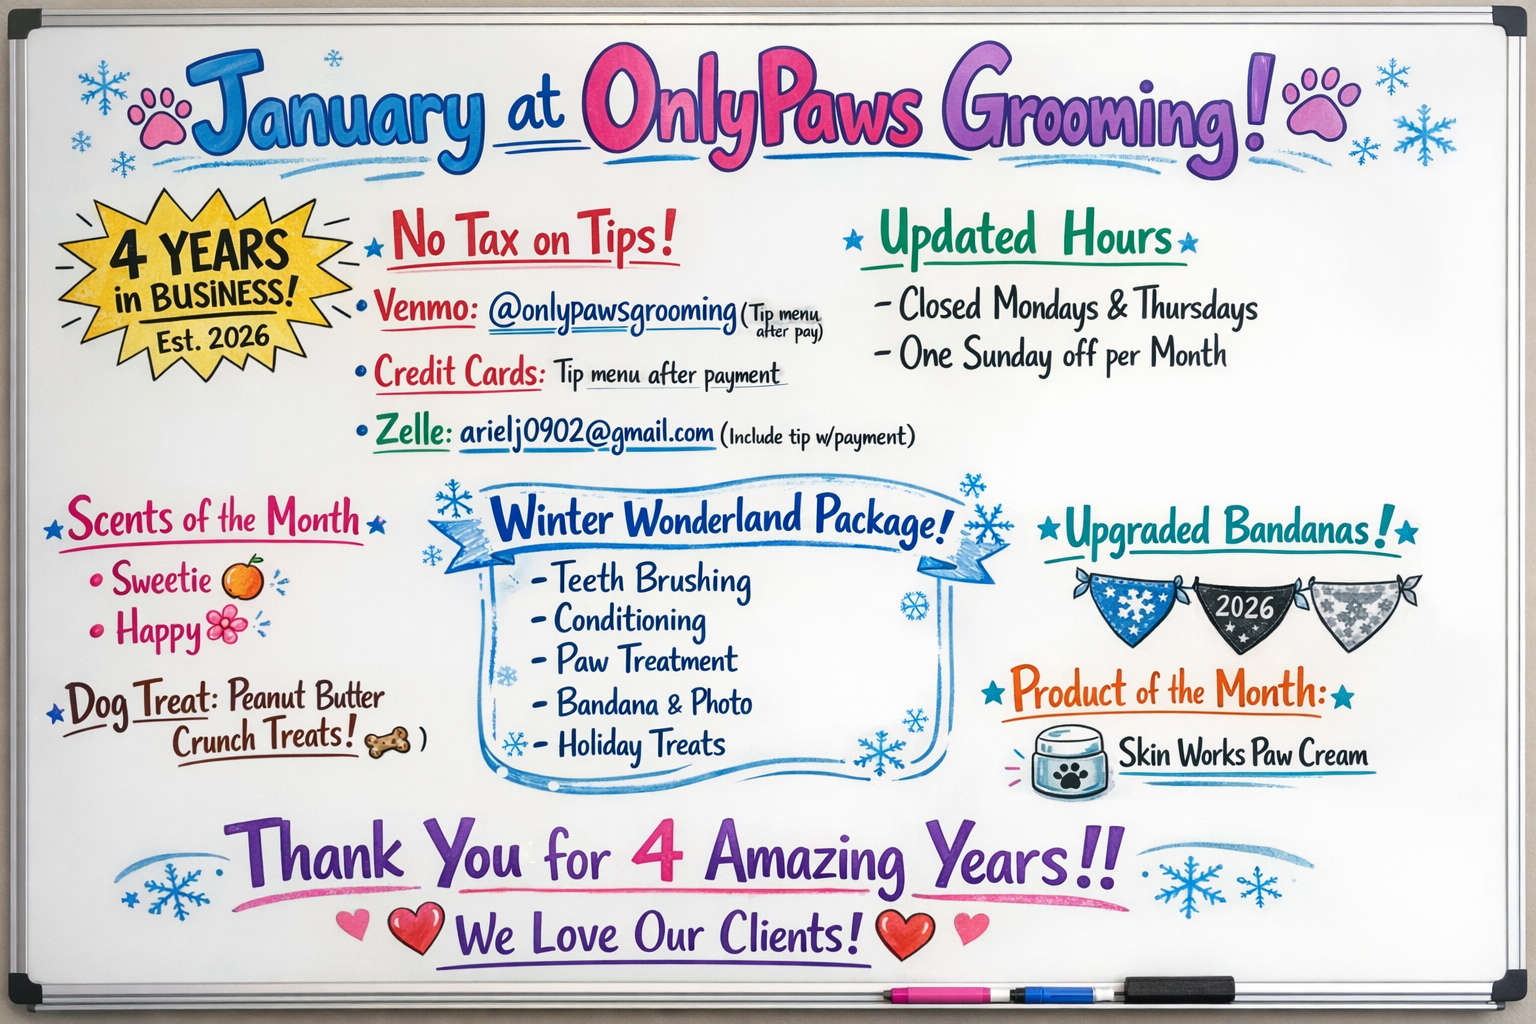 January at OnlyPaws Grooming!
4 YEARS
in BUSiNESS!
Est. 2026
No Tax on Tips!
• Venmo: @onlypawsgrooming (Tip menu
after pay)
• Credit Cards: Tip menu after payment
• Zelle: arielj0902@gmail.com (Include tip w/payment)
Updated Hours
- Closed Mondays & Thursdays
- One Sunday off per Month
Scents of the Month
• Sweetie
• Happy
Dog Treat: Peanut Butter
Crunch Treats! )
Winter Wonderland Package!
- Teeth Brushing
- Conditioning
- Paw Treatment
- Bandana & Photo
- Holiday Treats
Upgraded Bandanas!
2026
Product of the Month:
Skin Works Paw Cream
Thank You for 4 Amazing Years!!
We Love Our Clients!